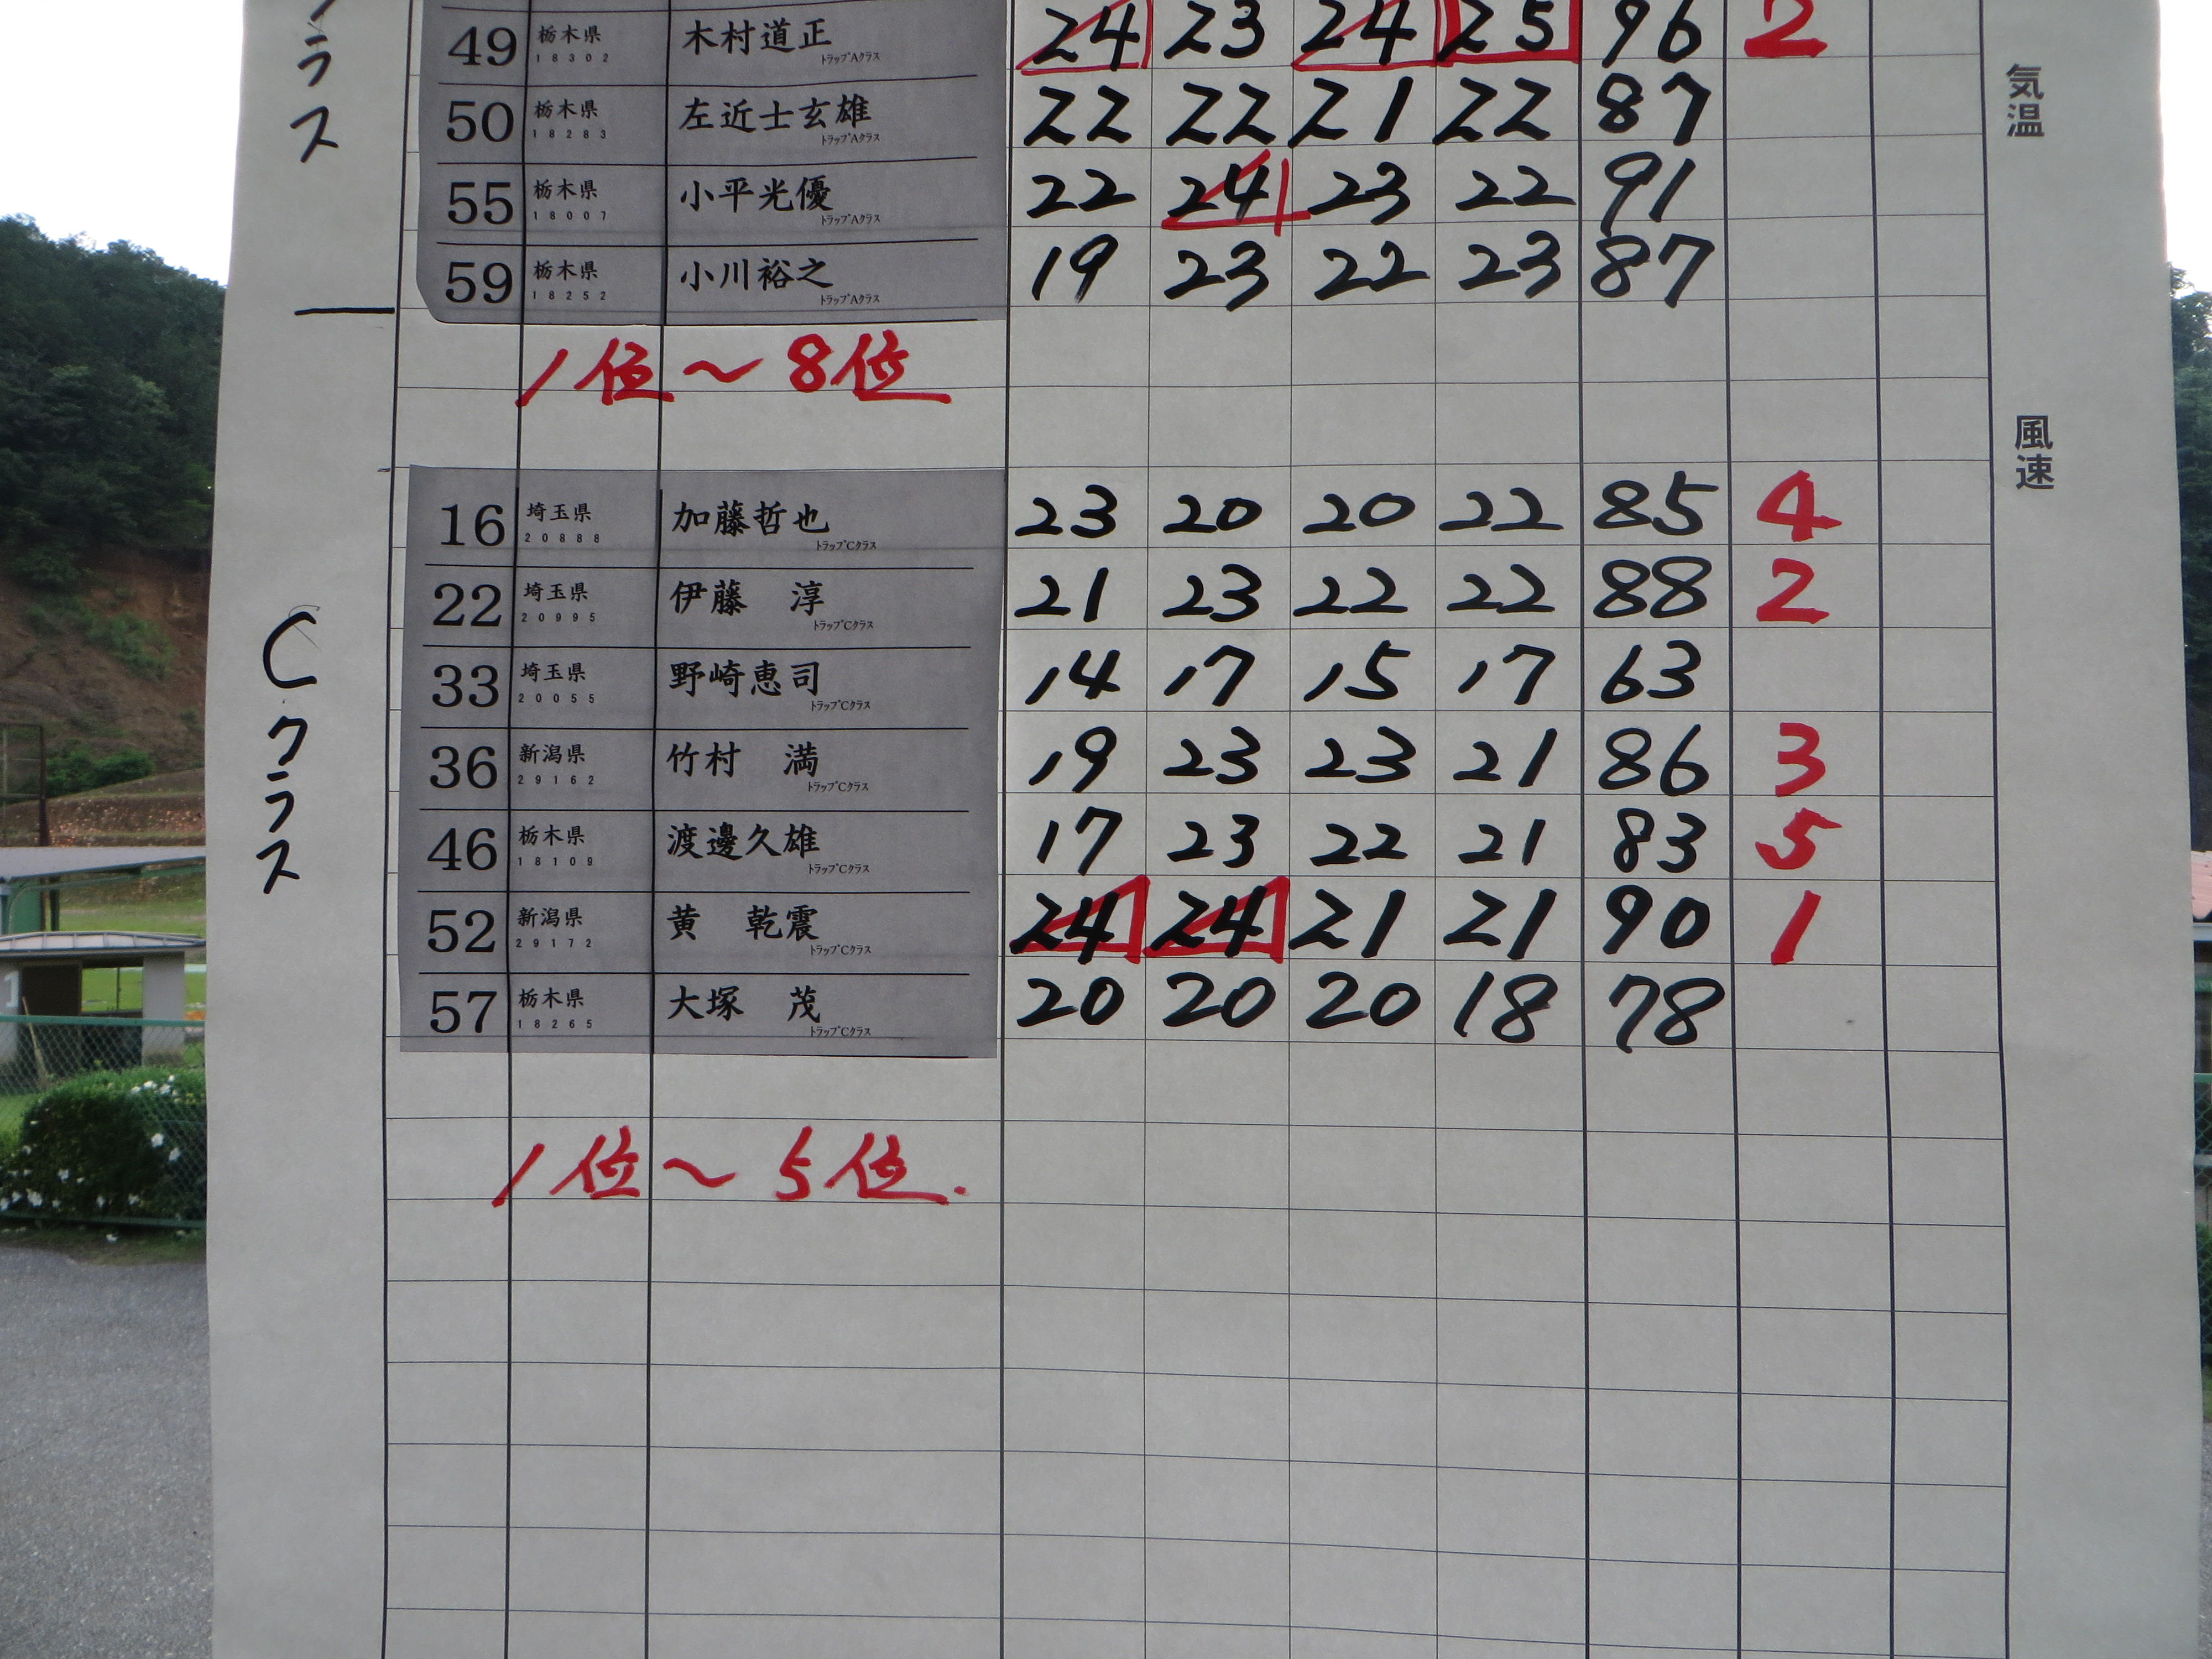 ラス
49 栃木県 18302 木村道正 トラップAクラス 24 23 24 25 96 2
50 栃木県 18283 左近士玄雄 トラップAクラス 22 22 21 22 87
55 栃木県 18007 小平光優 トラップAクラス 22 24 23 22 91
59 栃木県 18252 小川裕之 トラップAクラス 19 23 22 23 87
1位〜8位
Cクラス
16 埼玉県 20888 加藤哲也 トラップCクラス 23 20 20 22 85 4
22 埼玉県 20995 伊藤 淳 トラップCクラス 21 23 22 22 88 2
33 埼玉県 20055 野崎恵司 トラップCクラス 14 17 15 17 63
36 新潟県 29162 竹村 満 トラップCクラス 19 23 23 21 86 3
46 栃木県 18109 渡邊久雄 トラップCクラス 17 23 22 21 83 5
52 新潟県 29172 黄 乾震 トラップCクラス 24 24 21 21 90 1
57 栃木県 18265 大塚 茂 トラップCクラス 20 20 20 18 78
1位〜5位.
気温
風速